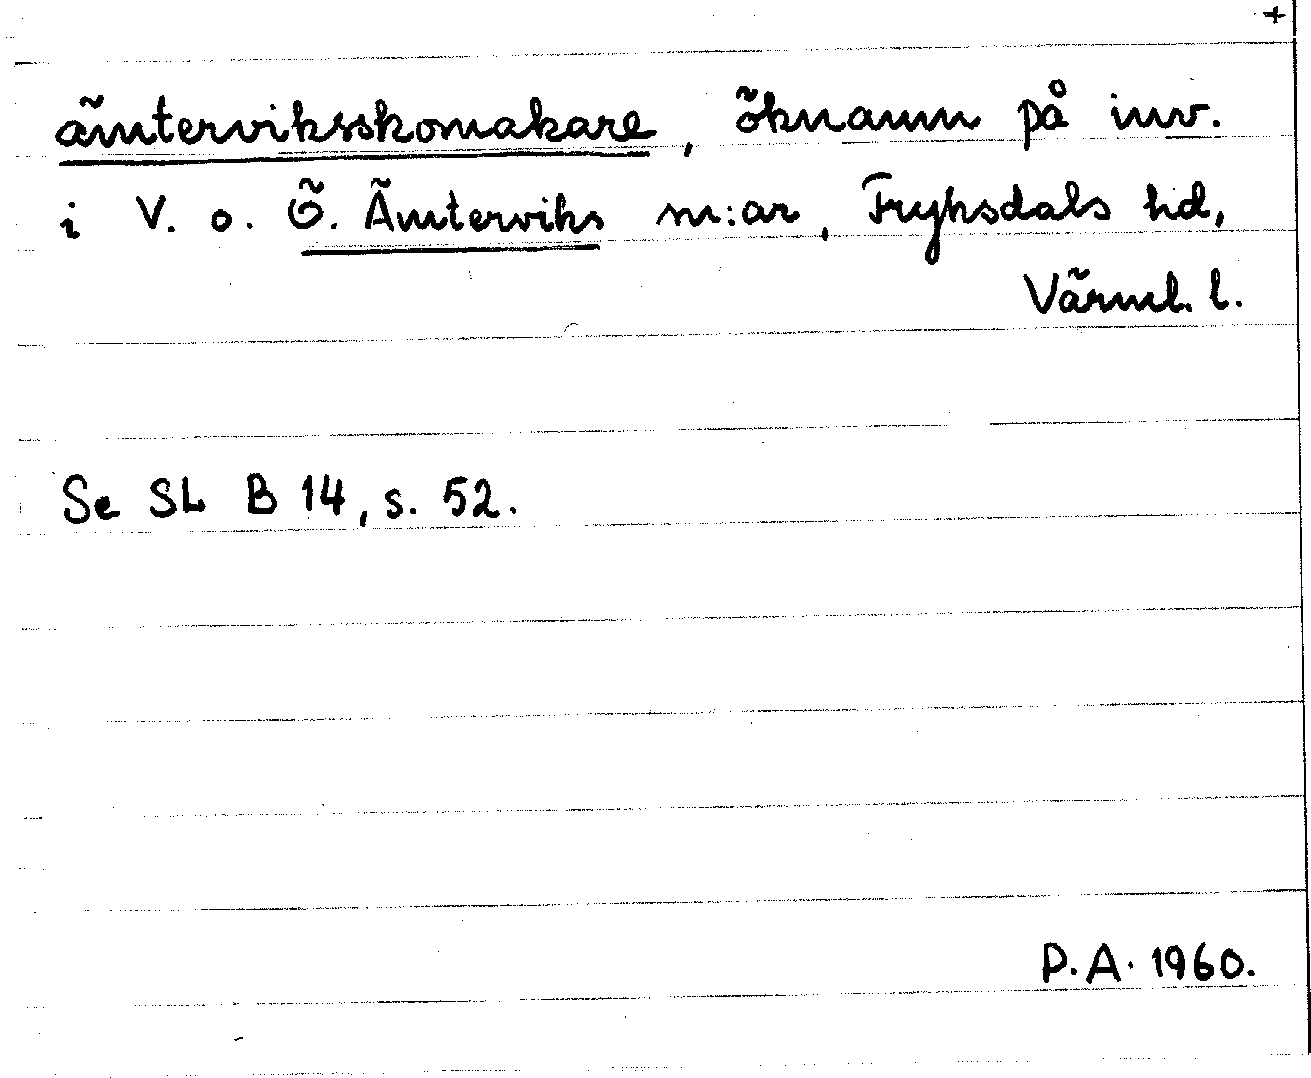 +
ämterviksskomakare, öknamn på inv.
i V. o. Ö. Ämterviks sn:ar, Fryksdals hd,
Värml. l.
Se SL B 14, s. 52.
P.A. 1960.